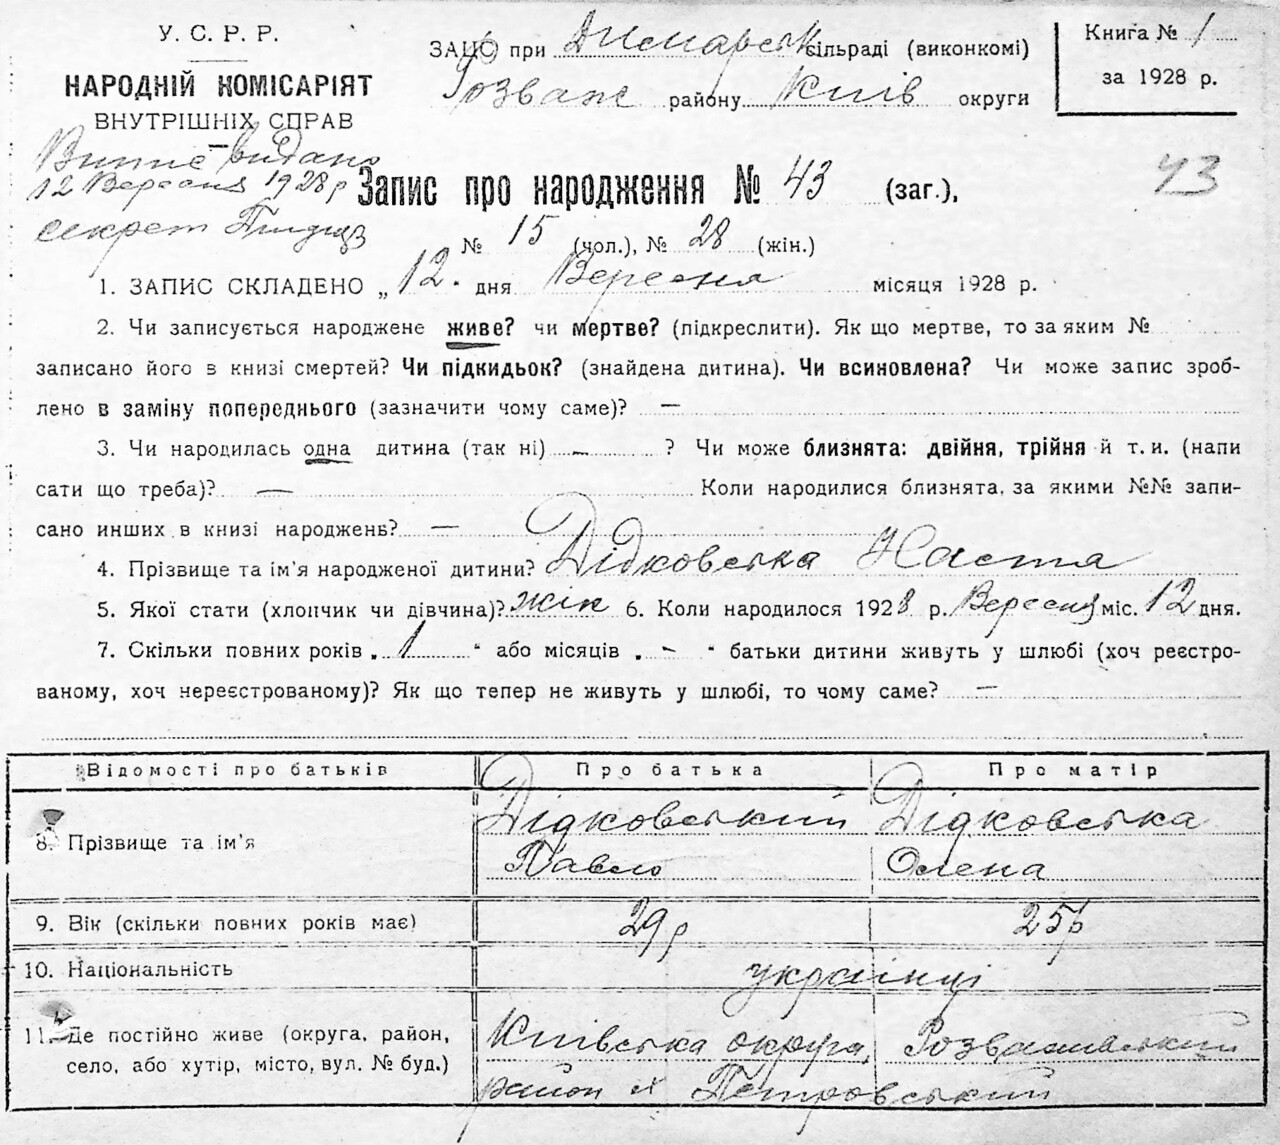 У. С. Р. Р.
НАРОДНІЙ КОМІСАРІЯТ
ВНУТРІШНІХ СПРАВ
Випис видано
12 Вересня 1928 р
секрет
ЗАЦС при Димарськ сільраді (виконкомі)
Розваж району Київ округи
Книга № 1
за 1928 р.
Запис про народження № 43 (заг.),
43
№ 15 (чол.), № 28 (жін.)
1. ЗАПИС СКЛАДЕНО „ 12 " дня Вересня місяця 1928 р.
2. Чи записується народжене живе? чи мертве? (підкреслити). Як що мертве, то за яким №
записано його в книзі смертей? Чи підкидьок? (знайдена дитина). Чи всиновлена? Чи може запис зроб-
лено в заміну попереднього (зазначити чому саме)? —
3. Чи народилась одна дитина (так ні) — ? Чи може близнята: двійня, трійня й т. и. (напи
сати що треба)? — Коли народилися близнята, за якими №№ запи-
сано инших в книзі народжень? —
4. Прізвище та ім'я народженої дитини? Дідковська Настя
5. Якої стати (хлопчик чи дівчина)? жін 6. Коли народилося 1928 р. Вересня міс. 12 дня.
7. Скільки повних років „ 1 " або місяців „ - " батьки дитини живуть у шлюбі (хоч реєстро-
ваному, хоч нереєстрованому)? Як що тепер не живуть у шлюбі, то чому саме? —
Відомості про батьків Про батька Про матір
8. Прізвище та ім'я Дідковський Павло Дідковська Олена
9. Вік (скільки повних років має) 29 р 25 р
10. Національність українці
11. Де постійно живе (округа, район, Київська округа, Розважівський
село, або хутір, місто, вул. № буд.) район х Петровський